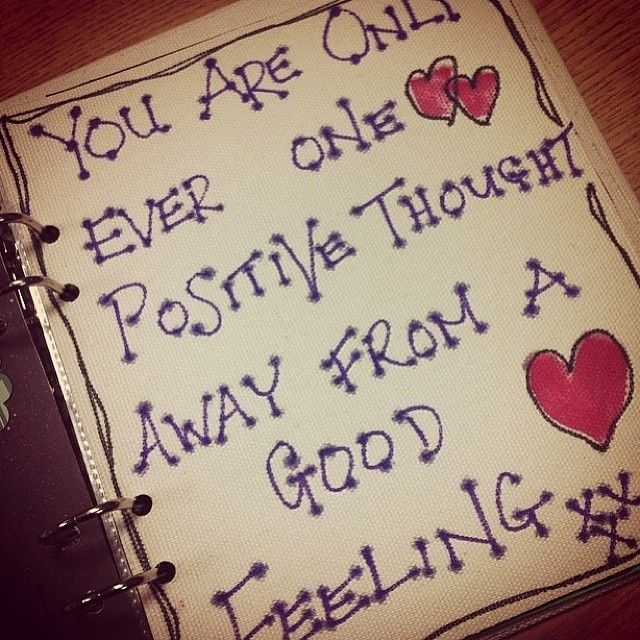 YOU ARE ONLY
EVER ONE
POSITIVE THOUGHT
AWAY FROM A
GOOD
FEELING xx
xx
x